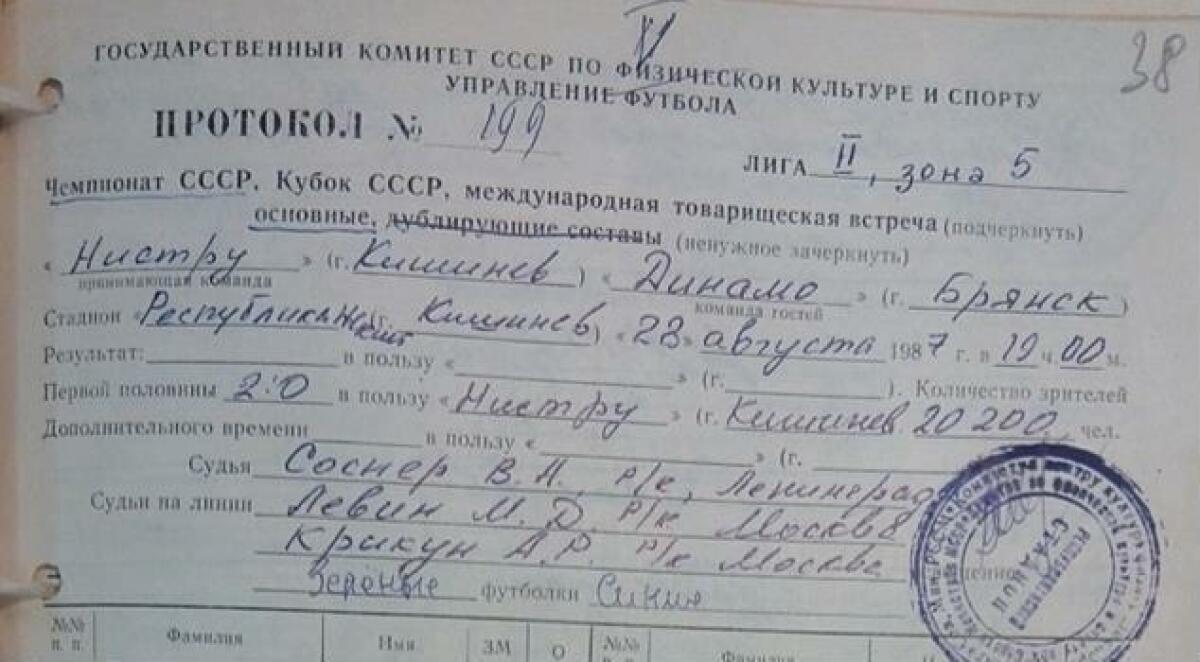 VI
38
ГОСУДАРСТВЕННЫЙ КОМИТЕТ СССР ПО ФИЗИЧЕСКОЙ КУЛЬТУРЕ И СПОРТУ
УПРАВЛЕНИЕ ФУТБОЛА
ПРОТОКОЛ № 199
ЛИГА II, зона 5
Чемпионат СССР, Кубок СССР, международная товарищеская встреча (подчеркнуть)
основные, дублирующие составы (ненужное зачеркнуть)
« Нистру » (г. Кишинев ) « Динамо » (г. Брянск )
принимающая команда команда гостей
Стадион «Республиканский (г. Кишинев) «28» августа 1987 г. в 19 ч. 00 м.
Результат: в пользу « » (г. ). Количество зрителей
Первой половины 2:0 в пользу « Нистру » (г. Кишинев 20 200 чел.
Дополнительного времени в пользу « » (г.
Судья Соснер В.Н. р/к, Ленинград
Судьи на линии Левин М.Д. р/к Москва
Крикун А.Р. р/к Москва
Зеленые футболки Синие
№№ п. п. Фамилия Имя ЗМ О №№ п. п.